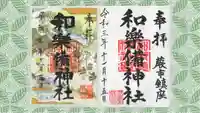 奉拝
蕨市鎮座
和樂備神社
令和三年十一月十五日
奉拝
和樂備神社